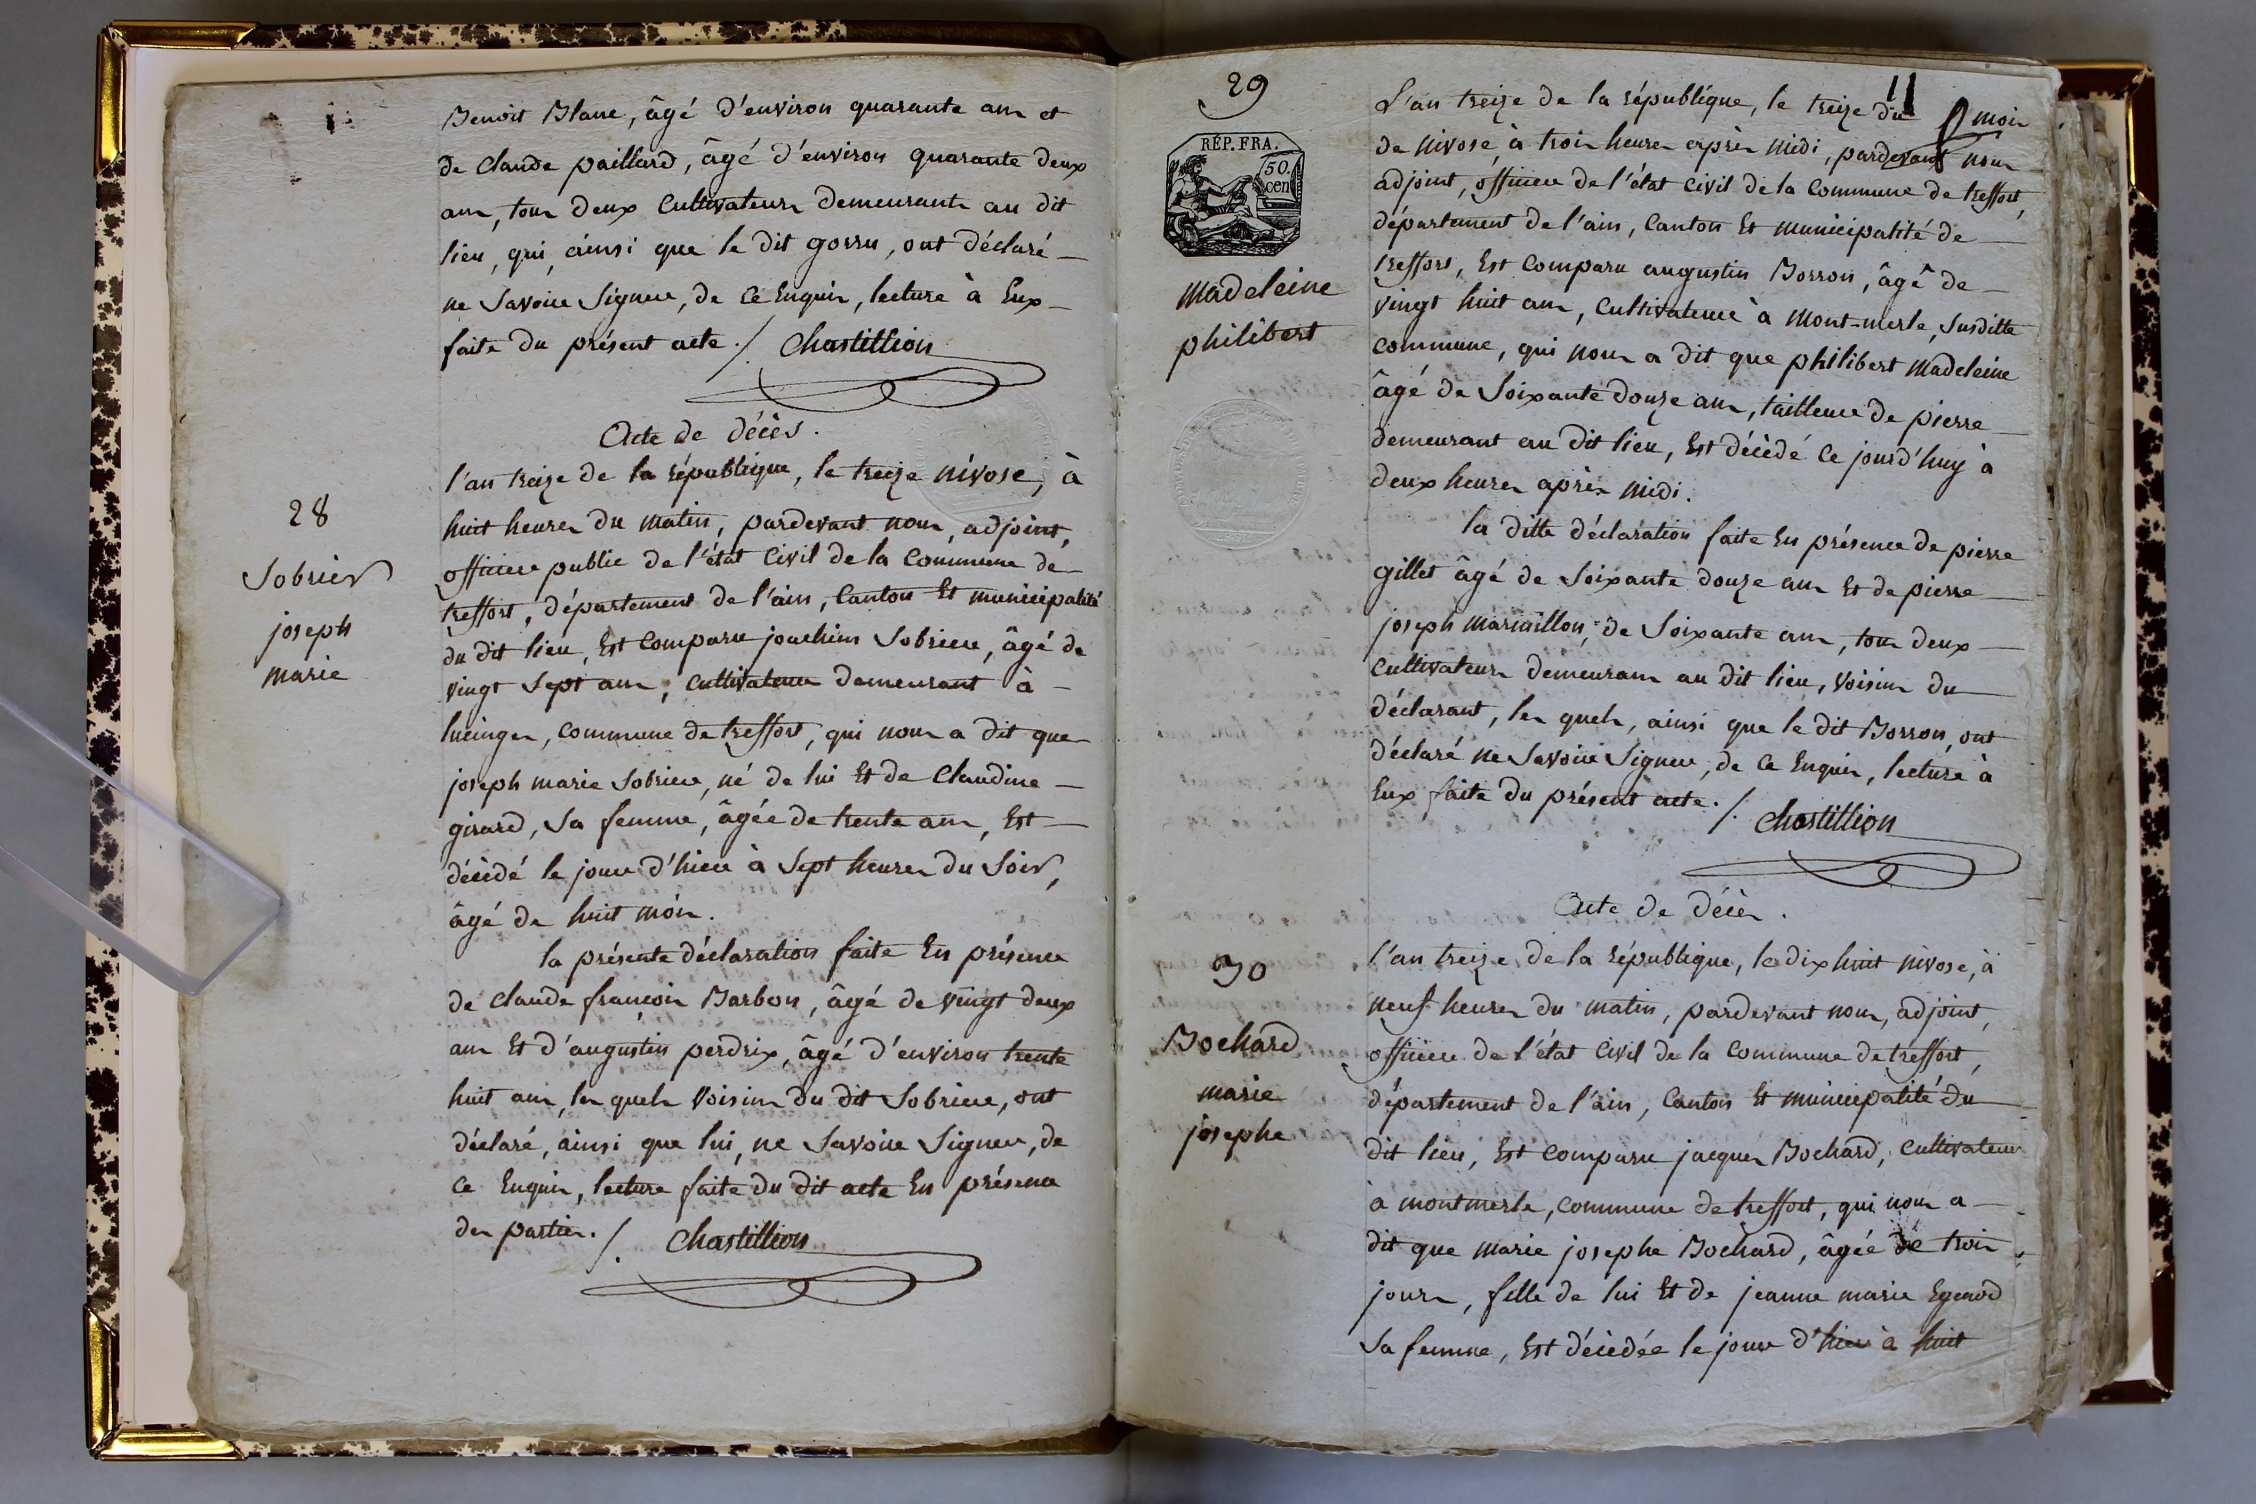 Benoit Blanc, âgé d'environ quarante ans et
de Claude paillard, âgé d'environ quarante deux
ans, tous deux Cultivateurs demeurants au dit
lieu, qui, ainsi que le dit gorru, ont déclaré –
ne Savoir Signer, de Ce Enquis, lecture à Eux –
faite du présent acte ./. Chastillion
Acte de décès.
28
Sobrier
joseph
marie
l'an treize de la république, le treize nivose, à
huit heures du matin, pardevant nous, adjoint,
officier public de l'état Civil de la Commune de
treffort, département de l'ain, Canton Et municipalité
du dit lieu, Est Comparu joachim Sobrier, âgé de
vingt Sept ans, Cultivateur demeurant à –
lucinges, commune de treffort, qui nous a dit que
joseph marie Sobrier, né de lui Et de Claudine –
girard, Sa femme, âgée de trente ans, Est –
décédé le jour d'hier à Sept heures du Soir,
âgé de huit mois.
la présente déclaration faite En présence
de Claude françois Barbon, âgé de vingt deux
ans Et d'augustin perdrix, âgé d'environ trente
huit ans, les quels Voisins du dit Sobrier, ont
déclaré, ainsi que lui, ne Savoir Signer, de
Ce Enquis, lecture faite du dit acte En présence
des parties ./. Chastillion
11
29
RÉP. FRA.
50.
cen
madeleine
philibert
L'an treize de la république, le treize du mois
de nivose à trois heures après midi, pardevant nous
adjoint, officier de l'état Civil de la Commune de treffort,
département de l'ain, Canton Et municipalité de –
treffort, Est Comparu augustin Borron, âgé de –
vingt huit ans, Cultivateur à Mont-merle, Susditte
commune, qui nous a dit que philibert madeleine
âgé de Soixante douze ans, tailleur de pierre –
demeurant au dit lieu, Est décédé Ce jourd'huy à
deux heures après midi.
la ditte déclaration faite En présence de pierre
gillet âgé de Soixante douze ans Et de pierre –
joseph mariaillon, de Soixante ans, tous deux –
Cultivateurs demeurans au dit lieu, Voisins du –
déclarant, les quels, ainsi que le dit Borron, ont
déclaré ne Savoir Signer, de Ce Enquis, lecture à
Eux faite du présent acte ./. Chastillion
Acte de décès.
30
Bochard
marie
josephe
l'an treize de la république, le dix huit nivose, à
neuf heures du matin, pardevant nous, adjoint,
officier de l'état Civil de la Commune de treffort,
département de l'ain, Canton Et municipalité du –
dit lieu, Est Comparu jacques Bochard, Cultivateur
à montmerle, Commune de treffort, qui nous a –
dit que marie josephe Bochard, âgée de trois
jours, fille de lui Et de jeanne marie Egraod
Sa femme, Est décédée le jour d'hier à huit